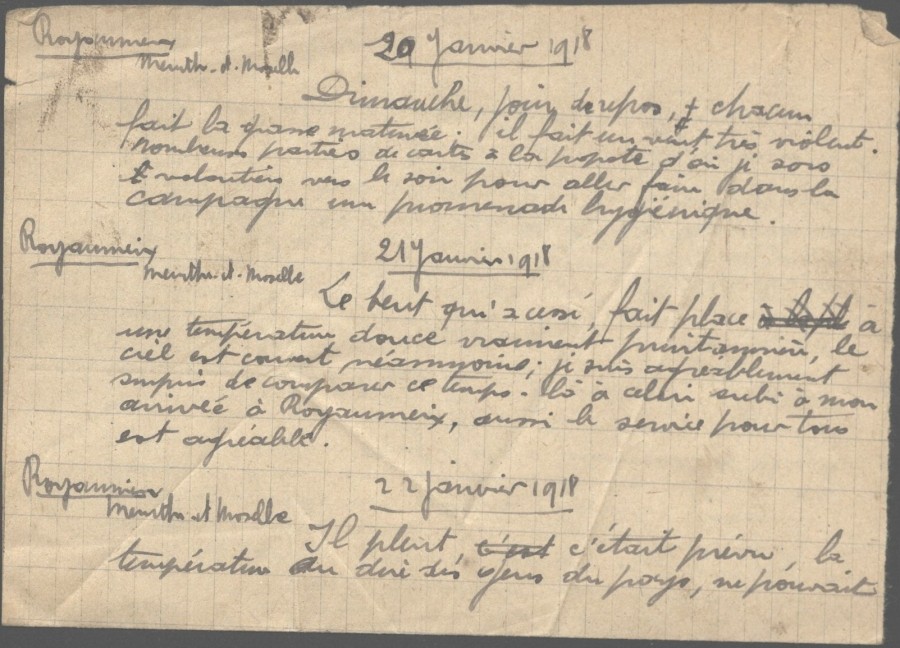 Royaumeix
Meurthe-et-Moselle
20 Janvier 1918
Dimanche, jour de repos, chacun
fait la grasse matinée. il fait un vent très violent.
Nombreuses parties de cartes à la popote d'où je sors
volontiers vers le soir pour aller faire dans la
campagne une promenade hygiénique.
Royaumeix
Meurthe-et-Moselle
21 Janvier 1918
Le vent qui a cessé, fait place à
une température douce vraiment printannière, le
ciel est couvert néammoins; je suis agréablement
surpris de comparer ce temps-là à celui subi à mon
arrivée à Royaumeix, aussi le service pour tous
est agréable.
Royaumeix
Meurthe et Moselle
22 janvier 1918
Il pleut, c'est c'était prévu la
température du dire des gens du pays, ne pouvait